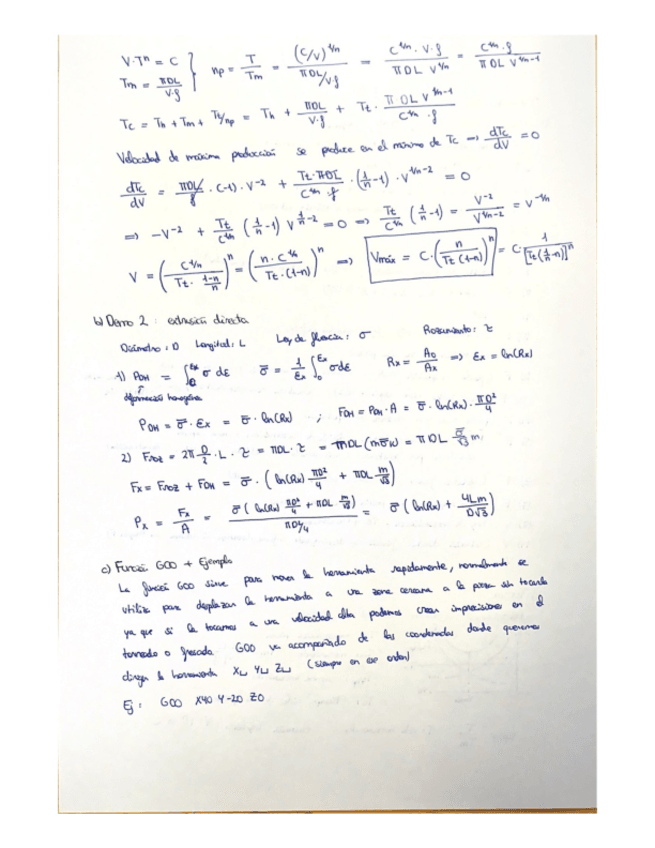 V·Tⁿ = C
Tm = πDL / V·f } np = T / Tm = (C/V)^(1/n) / (πDL/V·f) = C^(1/n) · V·f / πDL V^(1/n) = C^(1/n) · f / πDL V^(1/n-1)
Tc = Th + Tm + Tt/np = Th + πDL / V·f + Tt · πDL V^(1/n-1) / C^(1/n) · f
Velocidad de máxima producción se produce en el mínimo de Tc ⇒ dTc/dV = 0
dTc/dV = πDL/f · (-1) · V^-2 + Tt·πDL / C^(1/n) · f · (1/n -1) · V^(1/n-2) = 0
⇒ -V^-2 + Tt / C^(1/n) (1/n -1) V^(1/n-2) = 0 ⇒ Tt / C^(1/n) (1/n -1) = V^-2 / V^(1/n-2) = V^(-1/n)
V = (C^(1/n) / Tt · (1-n)/n)ⁿ = (n·C^(1/n) / Tt·(1-n))ⁿ ⇒ Vmáx = C·(n / Tt(1-n))ⁿ = C· 1 / [Tt(1/n -n)]ⁿ
b) Demo 2 : extrusión directa
Diámetro : D Longitud : L Ley de fluencia : σ Rozamiento : τ
1) P_DH = ∫₀^εx σ dε σ̄ = 1/εx ∫₀^εx σ dε Rx = A₀ / Ax ⇒ εx = ln(Rx)
↑
deformación homogénea
P_DH = σ̄ · εx = σ̄ · ln(Rx) ; F_DH = P_DH · A = σ̄ · ln(Rx) · πD²/4
2) Froz = 2π D/2 · L · τ = πDL · τ = πDL (m σ̄/√3) = πDL σ̄/√3 m
Fx = Froz + F_DH = σ̄ · ( ln(Rx) πD²/4 + πDL m/√3 )
Px = Fx / A = σ̄ ( ln(Rx) πD²/4 + πDL m/√3 ) / πD²/4 = σ̄ ( ln(Rx) + 4Lm / D√3 )
c) Función G00 + Ejemplo
La función G00 sirve para mover la herramienta rapidamente, normalmente se
utiliza para desplazar la herramienta a una zona cercana a la pieza sin tocarla
ya que si la tocamos a una velocidad alta podemos crear imprecisiones en el
torneado o fresado. G00 va acompañado de las coordenadas donde queremos
dirigir la herramienta X␣ Y␣ Z␣ (siempre en ese orden)
Ej : G00 X40 Y-20 Z0